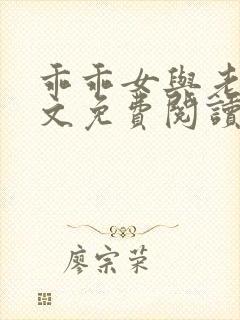 乖乖女與老
文免費閱讀
廖宗荣